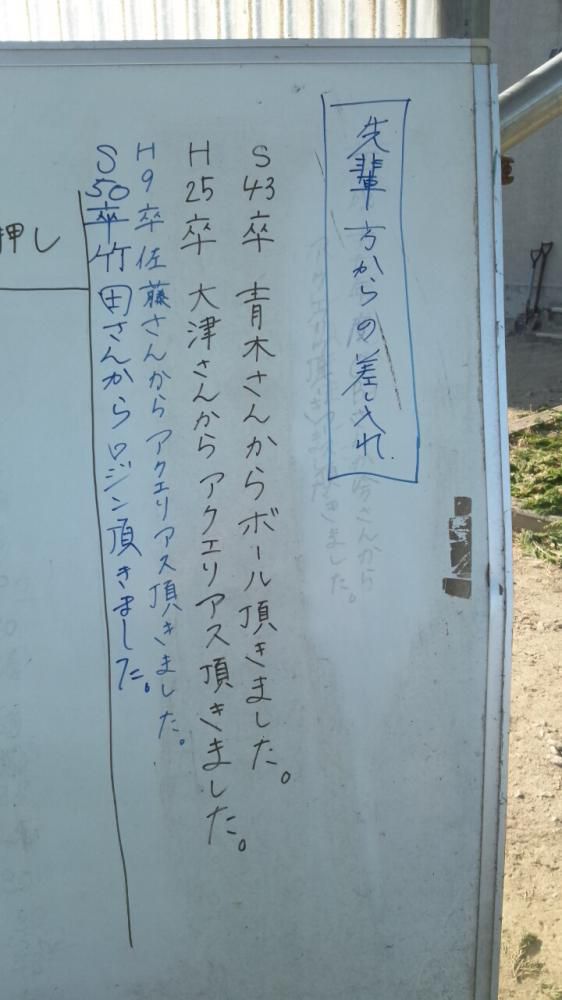 先輩方からの差し入れ
S43卒 青木さんからボール頂きました。
H25卒 大津さんからアクエリアス頂きました。
H9卒佐藤さんからアクエリアス頂きました。
S50卒竹田さんからロジン頂きました。
押し